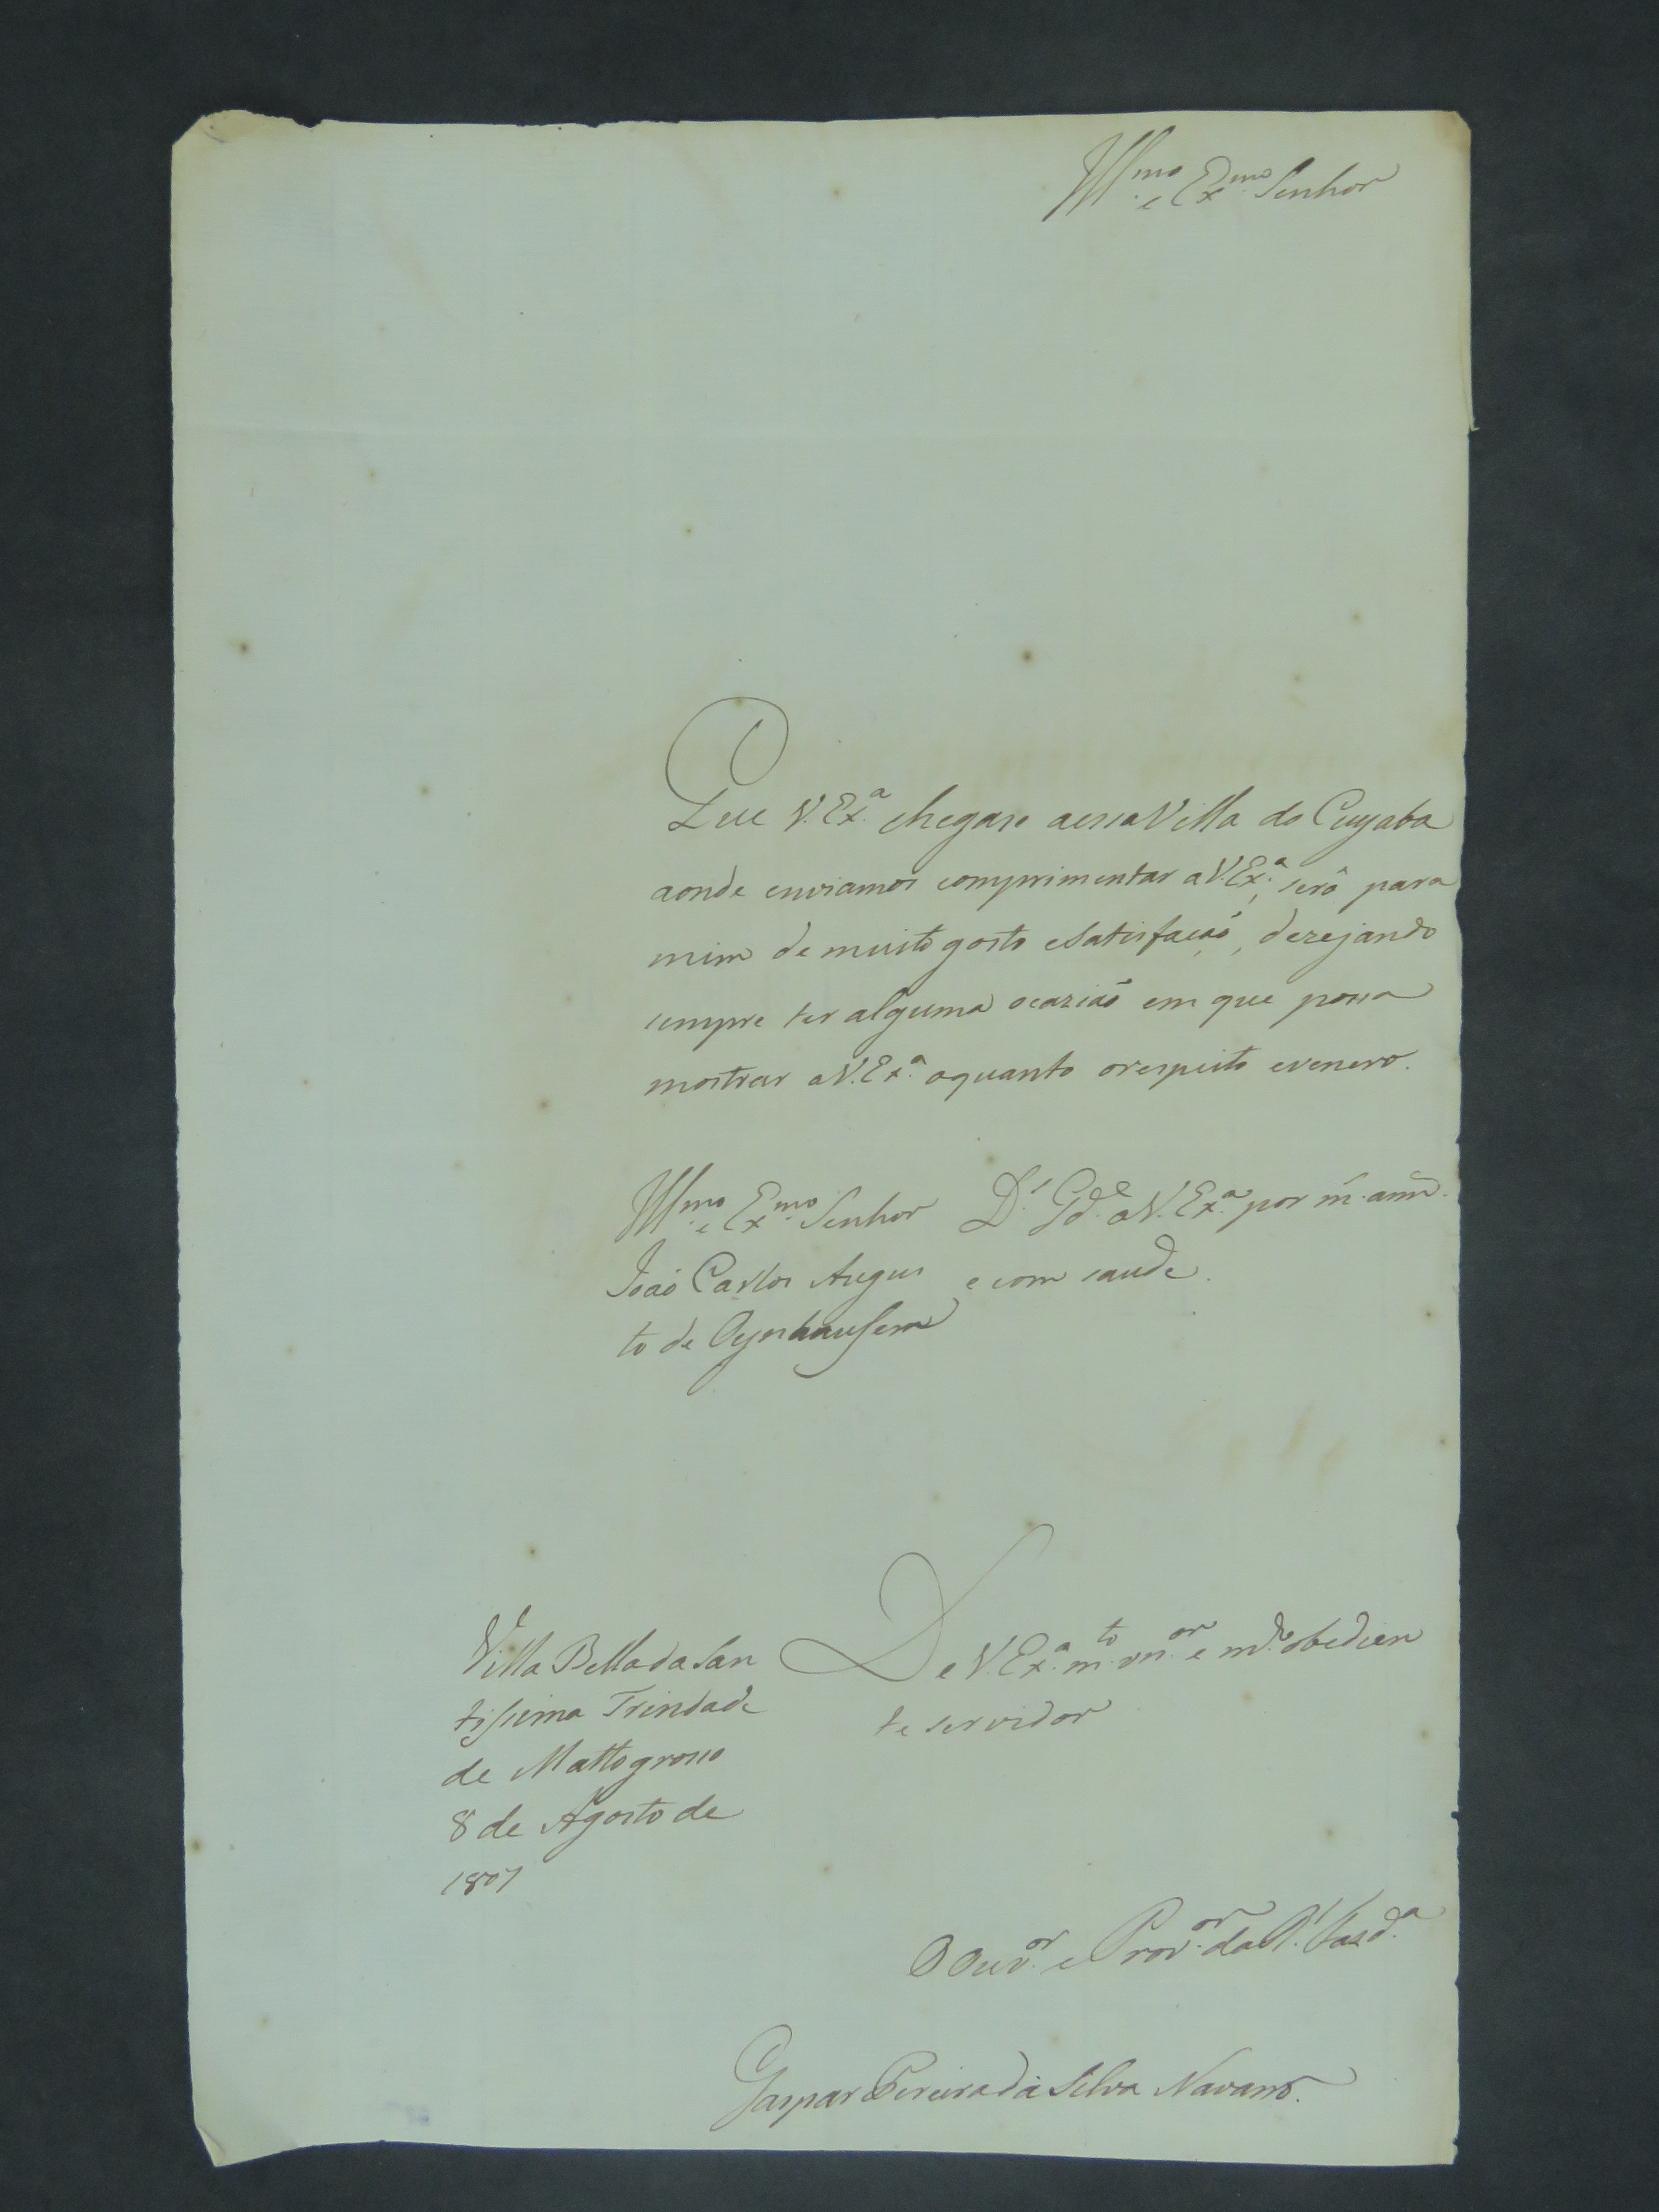 Illmo. e Exmo. Senhor
Que V. Exa. chegase aessa Villa do Cuyaba
aonde enviamos comprimentar a V. Exa., será para
mim de muito gosto e satisfação, dezejando
sempre ter alguma ocazião em que possa
mostrar a V. Exa. oquanto orespeito evenero.
Illmo. e Exmo. Senhor
João Carlos Augus
to de Oynhausem
Ds. Gde. a V. Exa. por m. ann.
e com saude.
De V. Exa. mto. vnor. e mto. obedien
te servidor
Villa Bella da San
tissima Trindade
de Mattogrosso
8 de Agosto de
1807
O Ouvor. e Provor. da Rl. Fazda.
Gaspar Pereira da Silva Navarro.